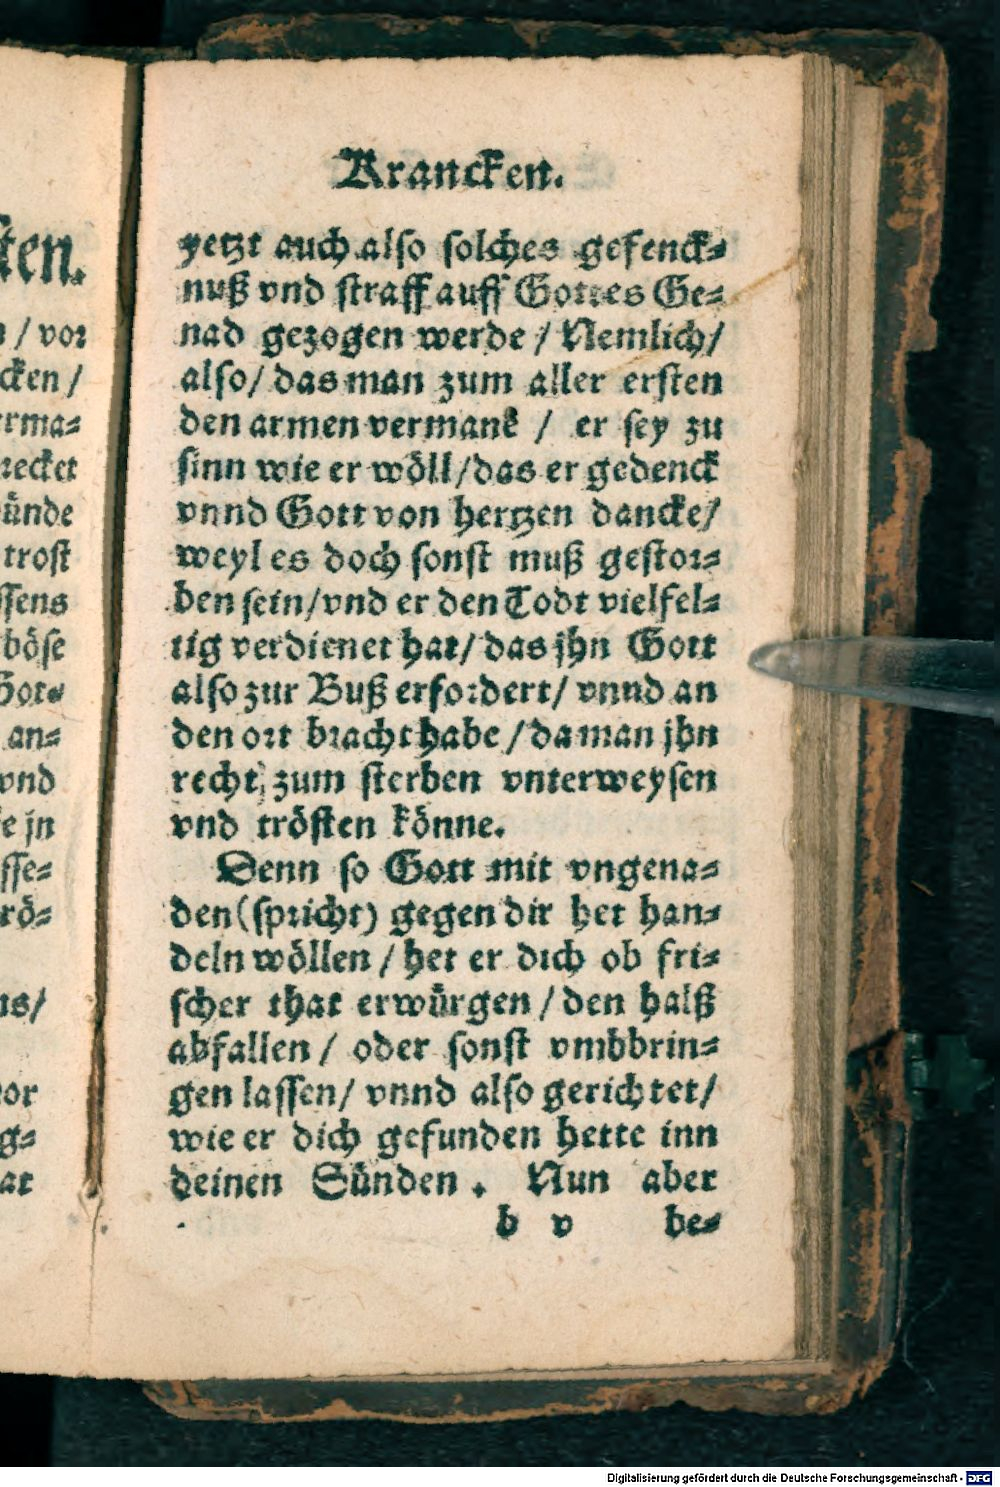 Krancken.
yetzt auch also solches gefenck-
nuß vnd straff auff Gottes Ge-
nad gezogen werde / Nemlich/
also/ das man zum aller ersten
den armen vermane / er sey zu
sinn wie er wöll/das er gedenck
vnnd Gott von hertzen dancke/
weyl es doch sonst muß gestor-
ben sein/vnd er den Todt vielfel-
tig verdienet hat/ das jhn Gott
also zur Buß erfordert/ vnnd an
den ort bracht habe / da man jhn
recht zum sterben vnterweysen
vnd trösten könne.
Denn so Gott mit vngena-
den (spricht) gegen dir het han-
deln wöllen / het er dich ob fri-
scher that erwürgen / den halß
abfallen / oder sonst vmbbrin-
gen lassen/ vnnd also gerichtet/
wie er dich gefunden hette inn
deinen Sünden . Nun aber
b v be-
sten.
/ vor
cken /
erma-
recket
ünde
trost
ssens
böse
Got-
an-
vnd
e jn
sse-
rö-
ns/
vor
g-
at
Digitalisierung gefördert durch die Deutsche Forschungsgemeinschaft - DFG